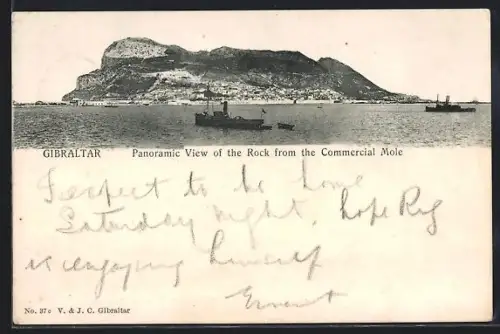 GIBRALTAR Panoramic View of the Rock from the Commercial Mole
I expect to be home
Saturday night, hope Reg
is enjoying himself
Ernest
No. 37c V. & J. C. Gibraltar